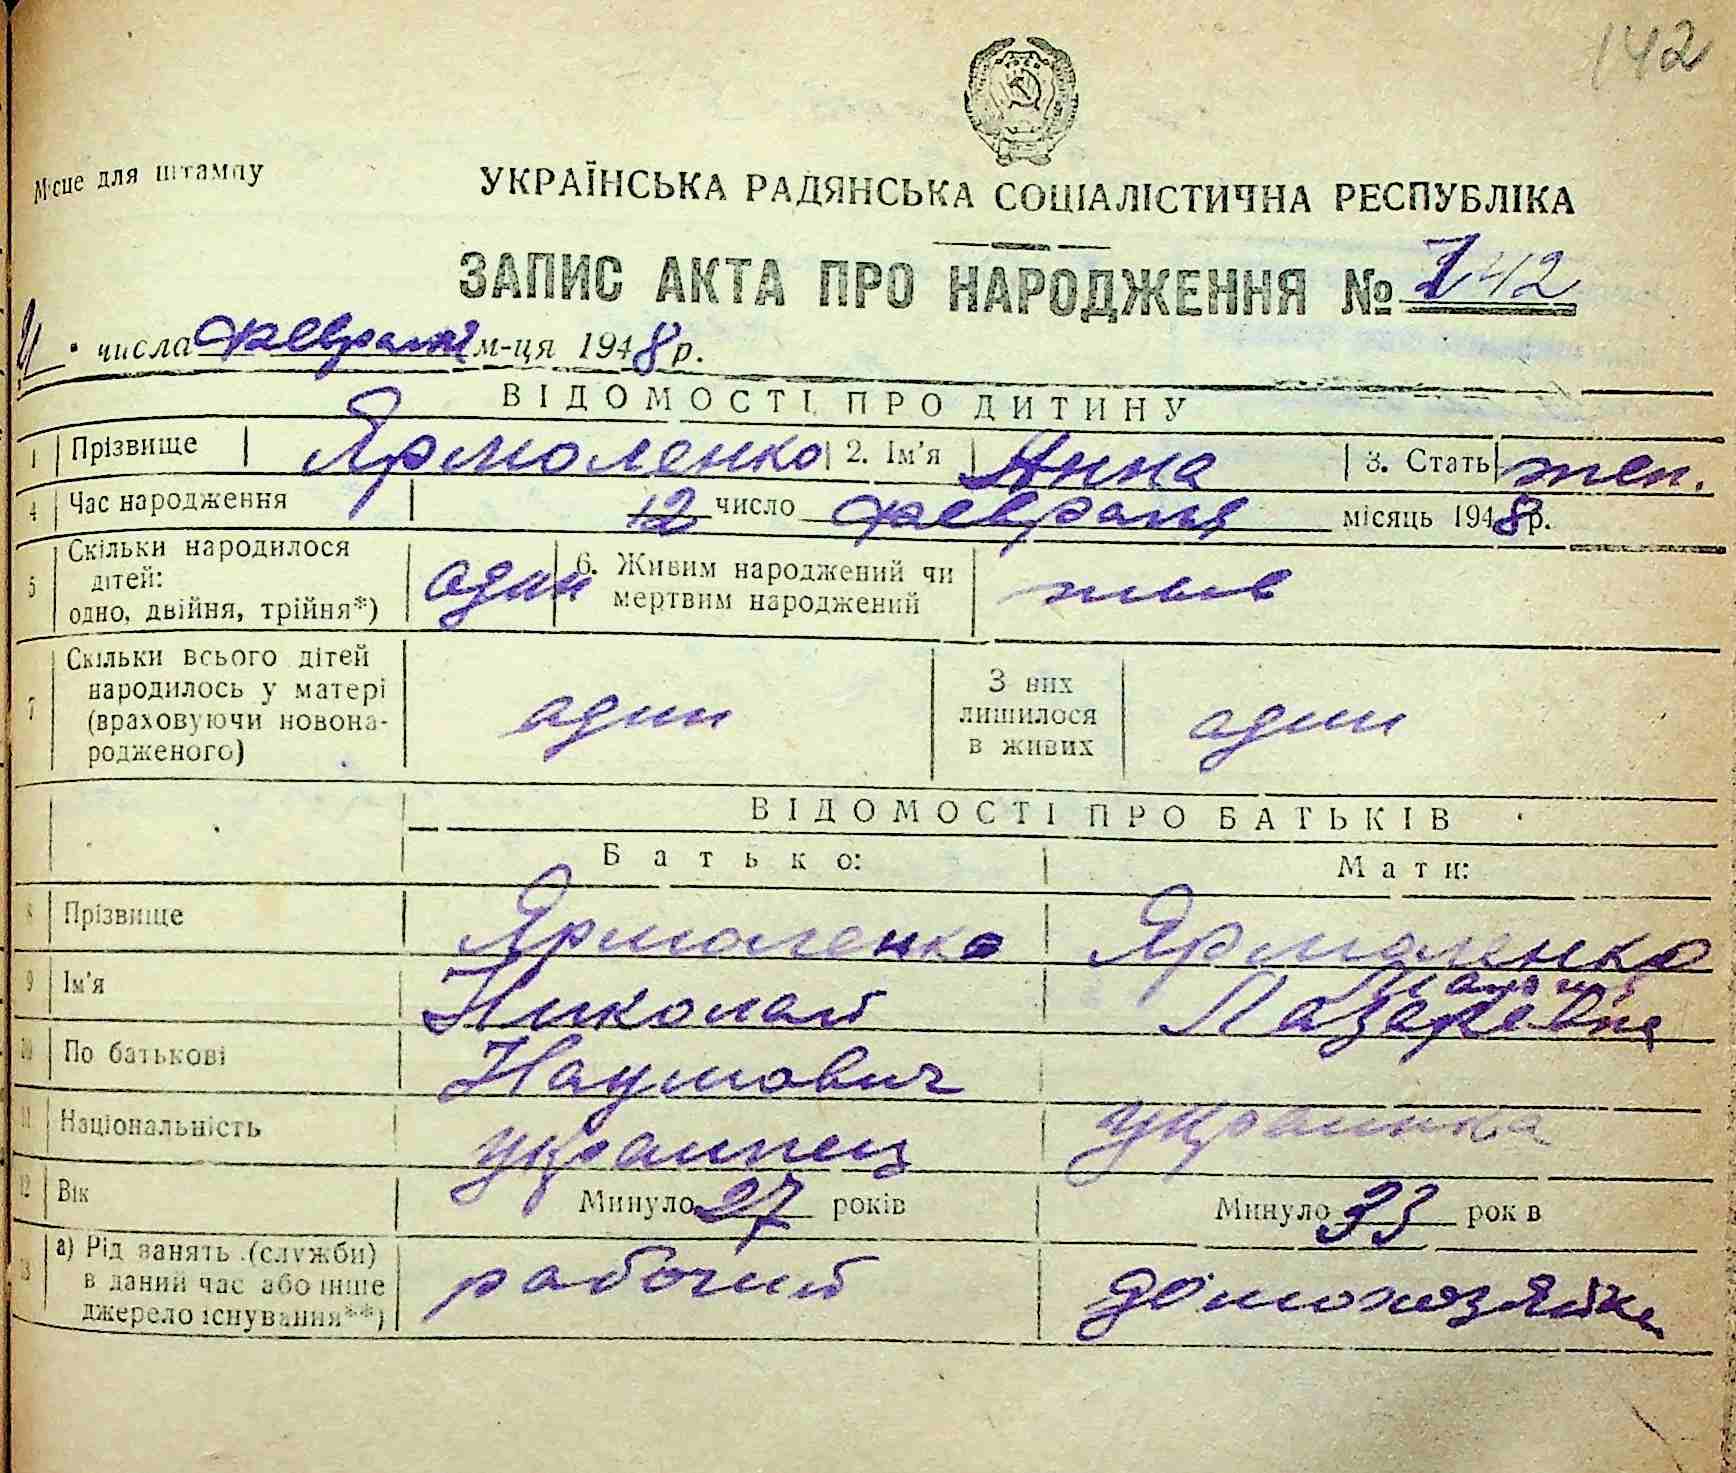 142
Місце для штампу
УКРАЇНСЬКА РАДЯНСЬКА СОЦІАЛІСТИЧНА РЕСПУБЛІКА
ЗАПИС АКТА ПРО НАРОДЖЕННЯ № 142
21 числа февраля м-ця 1948 р.
ВІДОМОСТІ ПРО ДИТИНУ
1 Прізвище Ярмоленко 2. Ім'я Анна 3. Стать жен.
4 Час народження 12 число февраля місяць 1948 р.
5 Скільки народилося дітей: одно, двійня, трійня*) один 6. Живим народжений чи мертвим народжений жив
7 Скільки всього дітей народилось у матері (враховуючи новонародженого) один З них лишилося в живих один
ВІДОМОСТІ ПРО БАТЬКІВ
Батько: Мати:
8 Прізвище Ярмоленко Ярмоленко
9 Ім'я Николай Лазаревна
10 По батькові Наумович
11 Національність украинец украинка
12 Вік Минуло 27 років Минуло 33 рок в
13 а) Рід занять (служби) в даний час або інше джерело існування**) рабочий домохозяйка